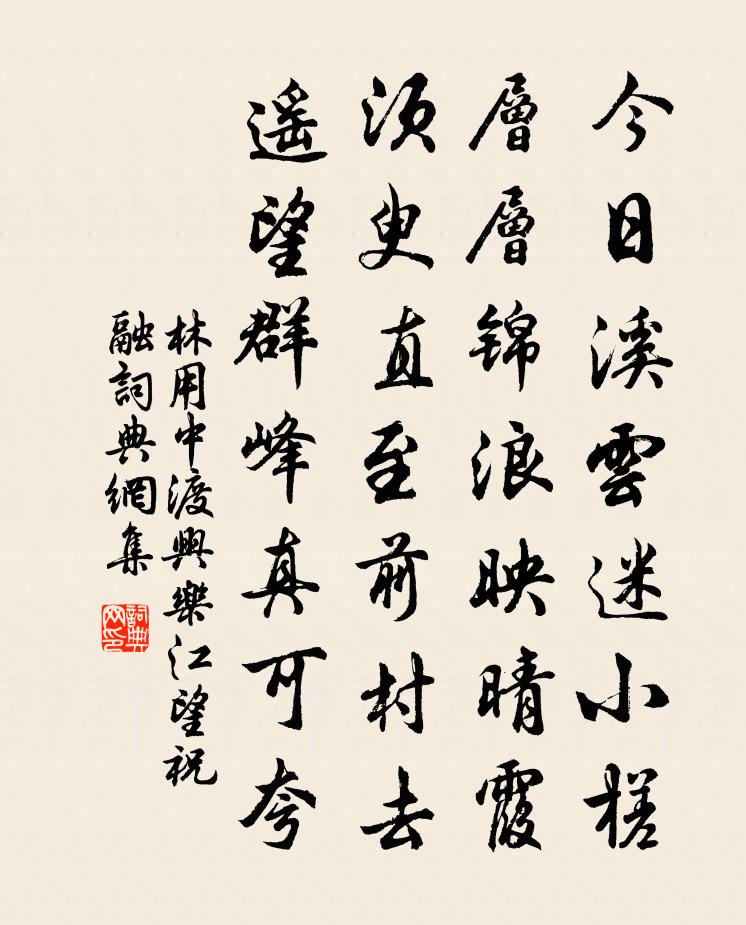 今日溪雲迷小槎
層層錦浪映晴霞
須臾直至前村去
遥望群峰真可夸
林用中渡興樂江望祝
融詞典網集
詞典網印